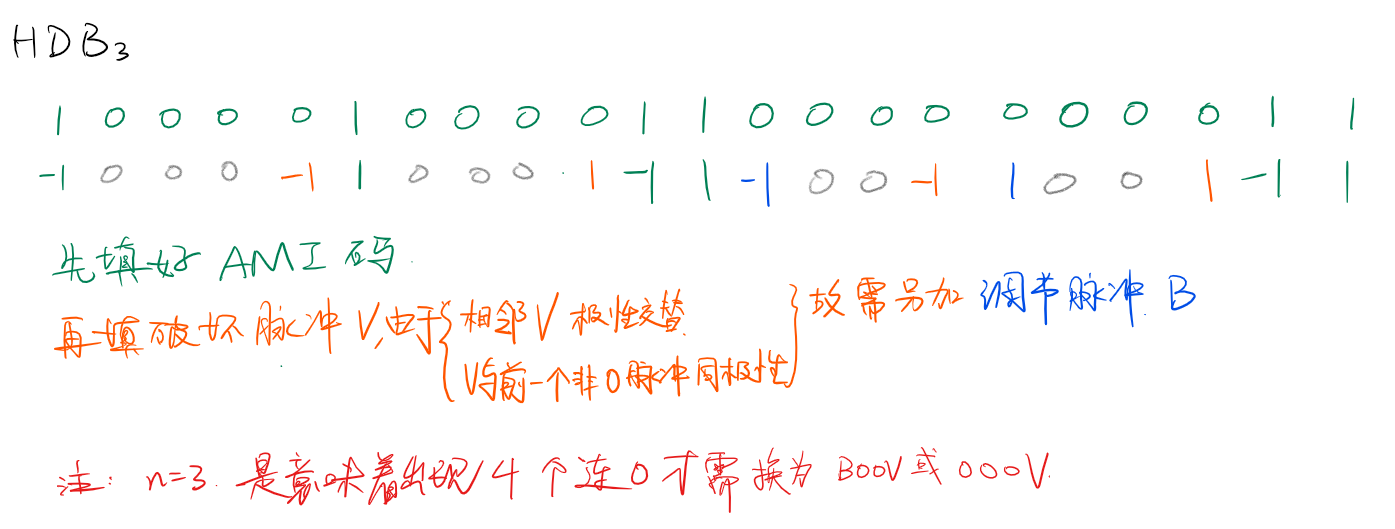 HDB₃
1 0 0 0 0 1 0 0 0 0 1 1 0 0 0 0 0 0 0 0 1 1
-1 0 0 0 -1 1 0 0 0 1 -1 1 -1 0 0 -1 1 0 0 1 -1 1
先填好 AMI 码.
再填破坏脉冲 V,由于{相邻 V 极性交替 V与前一个非0脉冲同极性}故需另加 调节脉冲 B
注: n=3. 是意味着出现 4 个连 0 才需换为 B00V 或 000V.